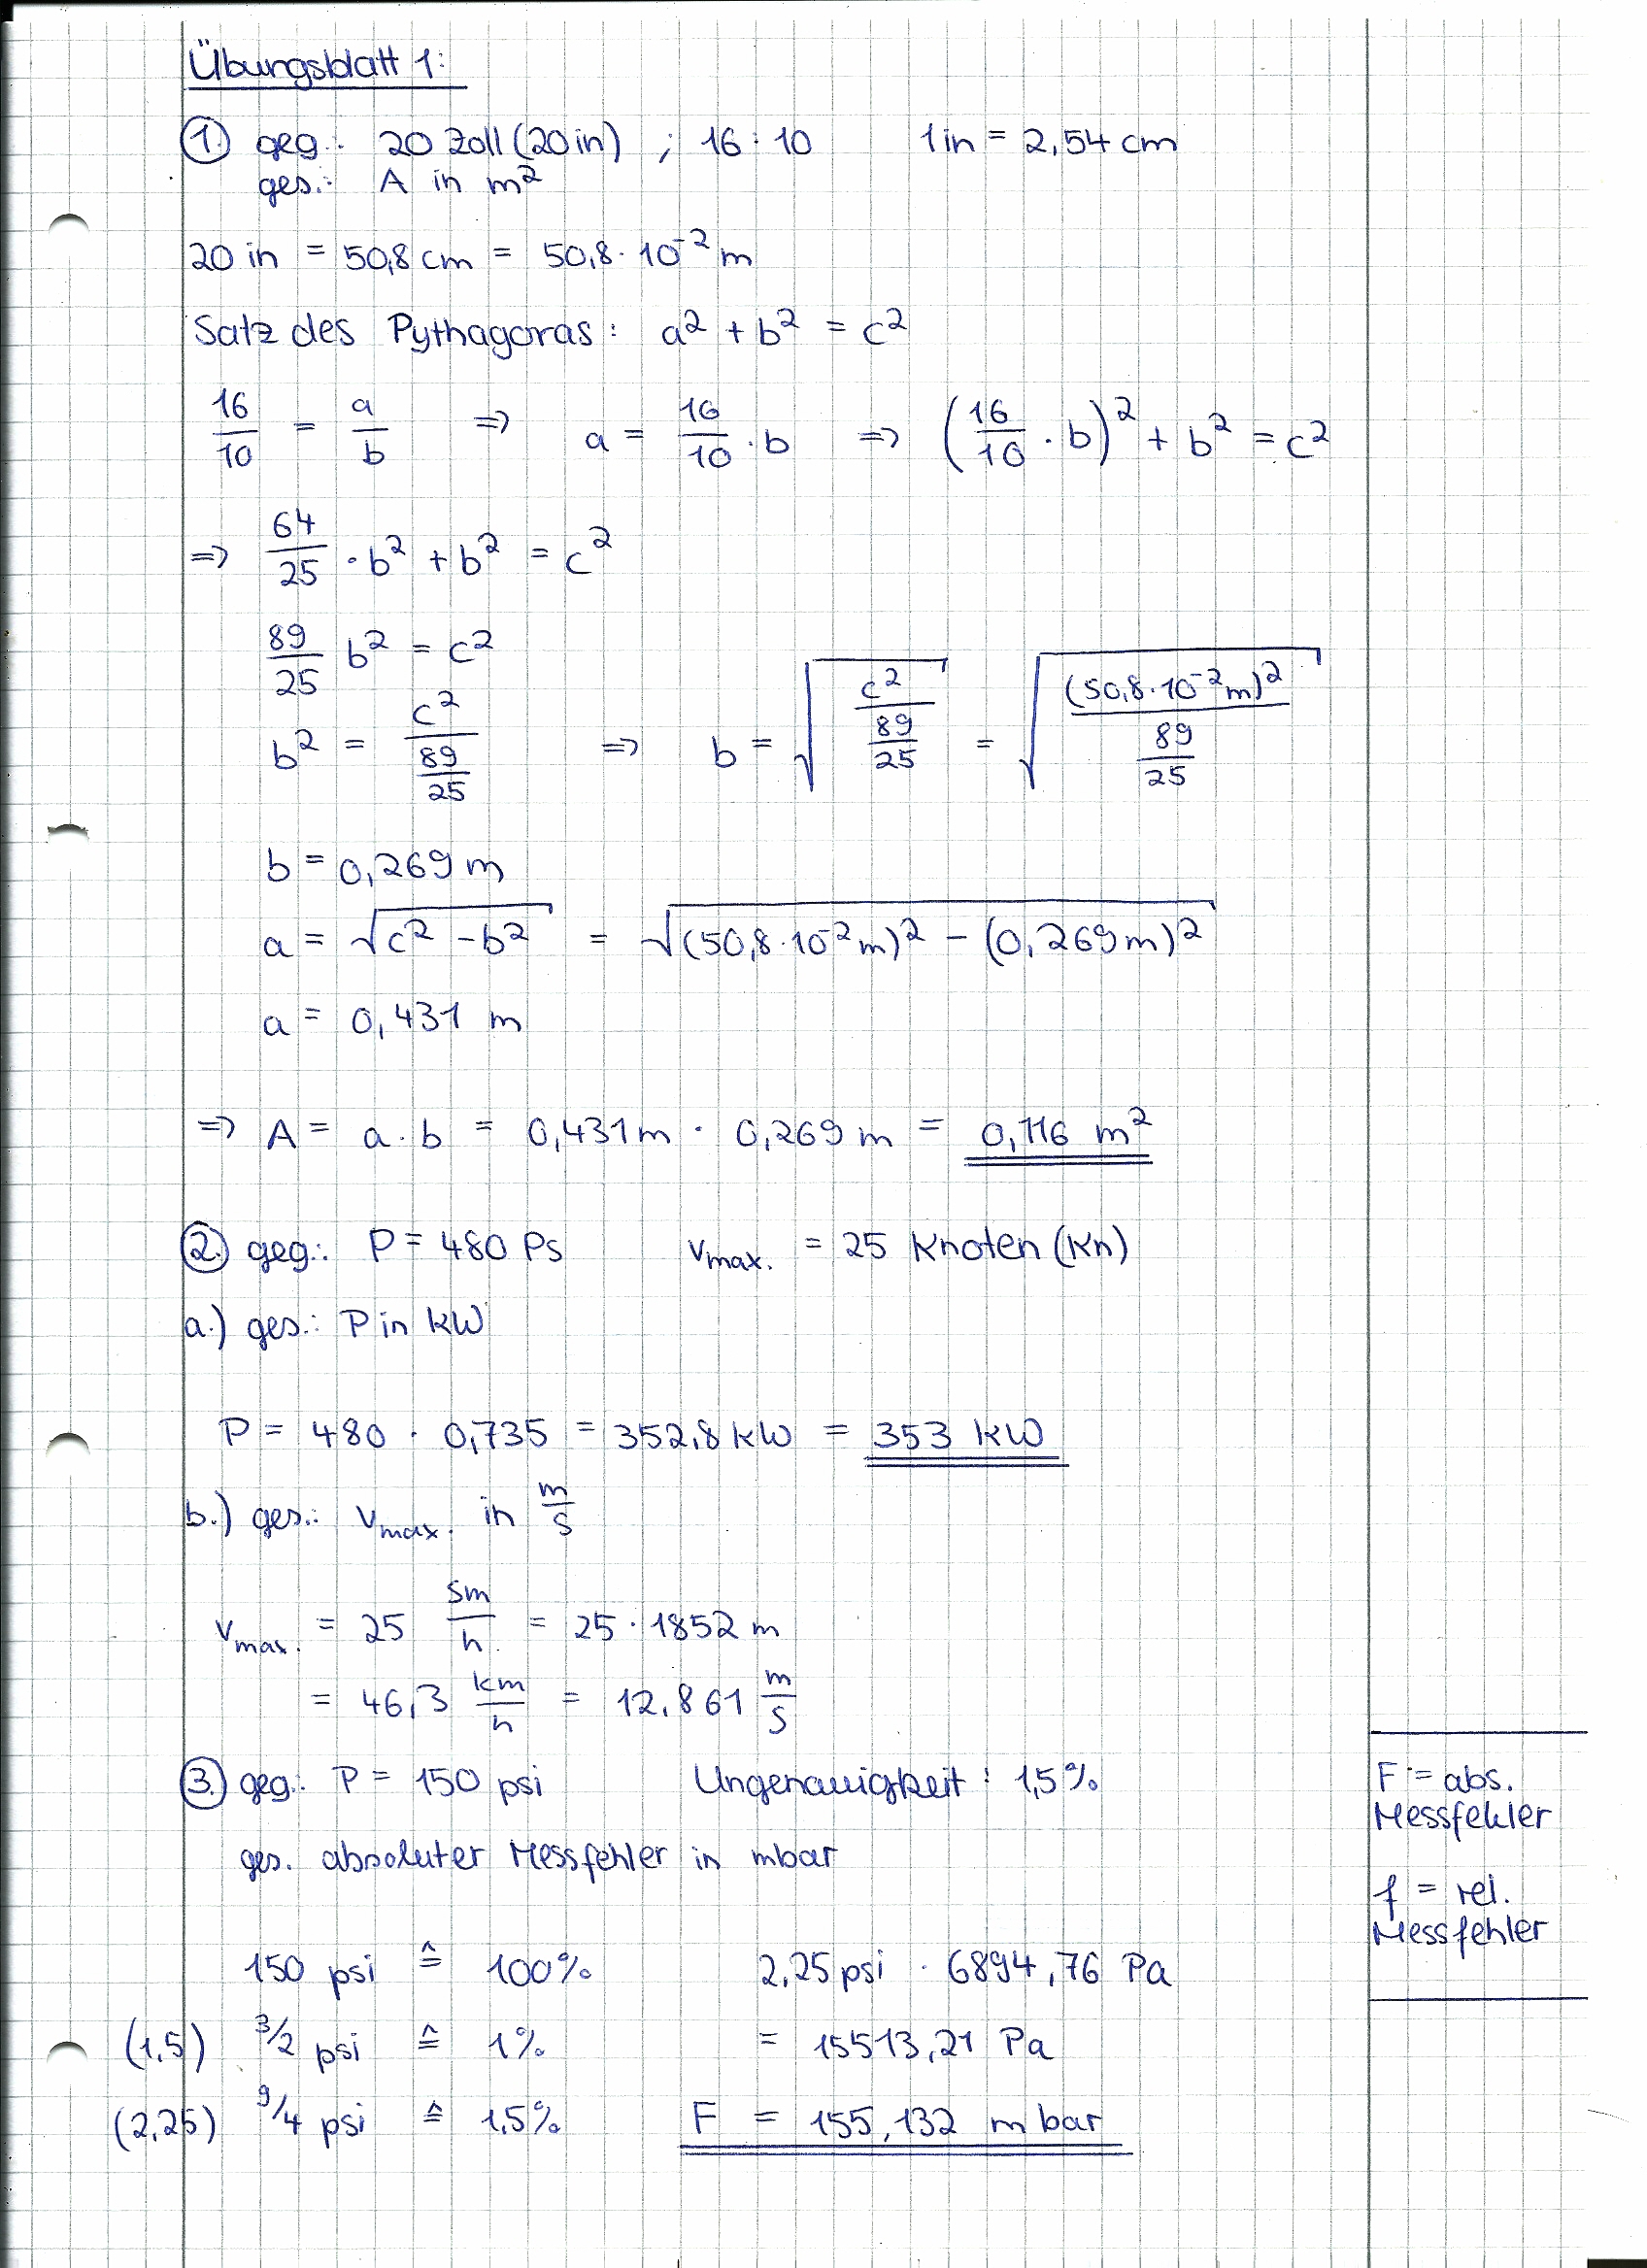 Übungsblatt 1:
1.) geg.: 20 Zoll (20 in) ; 16 : 10 1 in = 2,54 cm
ges.: A in m²
20 in = 50,8 cm = 50,8 · 10⁻² m
Satz des Pythagoras: a² + b² = c²
16/10 = a/b ⇒ a = 16/10 · b ⇒ (16/10 · b)² + b² = c²
⇒ 64/25 · b² + b² = c²
89/25 b² = c²
b² = c²/(89/25) ⇒ b = √(c²/(89/25)) = √((50,8·10⁻² m)²/(89/25))
b = 0,269 m
a = √(c² - b²) = √((50,8·10⁻² m)² - (0,269 m)²)
a = 0,431 m
⇒ A = a · b = 0,431 m · 0,269 m = 0,116 m²
2.) geg.: P = 480 Ps v max. = 25 Knoten (Kn)
a.) ges.: P in kW
P = 480 · 0,735 = 352,8 kW = 353 kW
b.) ges.: v max. in m/s
v max. = 25 sm/h = 25 · 1852 m
= 46,3 km/h = 12,861 m/s
3.) geg.: P = 150 psi Ungenauigkeit: 1,5%
ges. absoluter Messfehler in mbar
150 psi ≙ 100% 2,25 psi · 6894,76 Pa
(1,5) 3/2 psi ≙ 1% = 15513,21 Pa
(2,25) 9/4 psi ≙ 1,5% F = 155,132 mbar
F = abs.
Messfehler
f = rel.
Messfehler